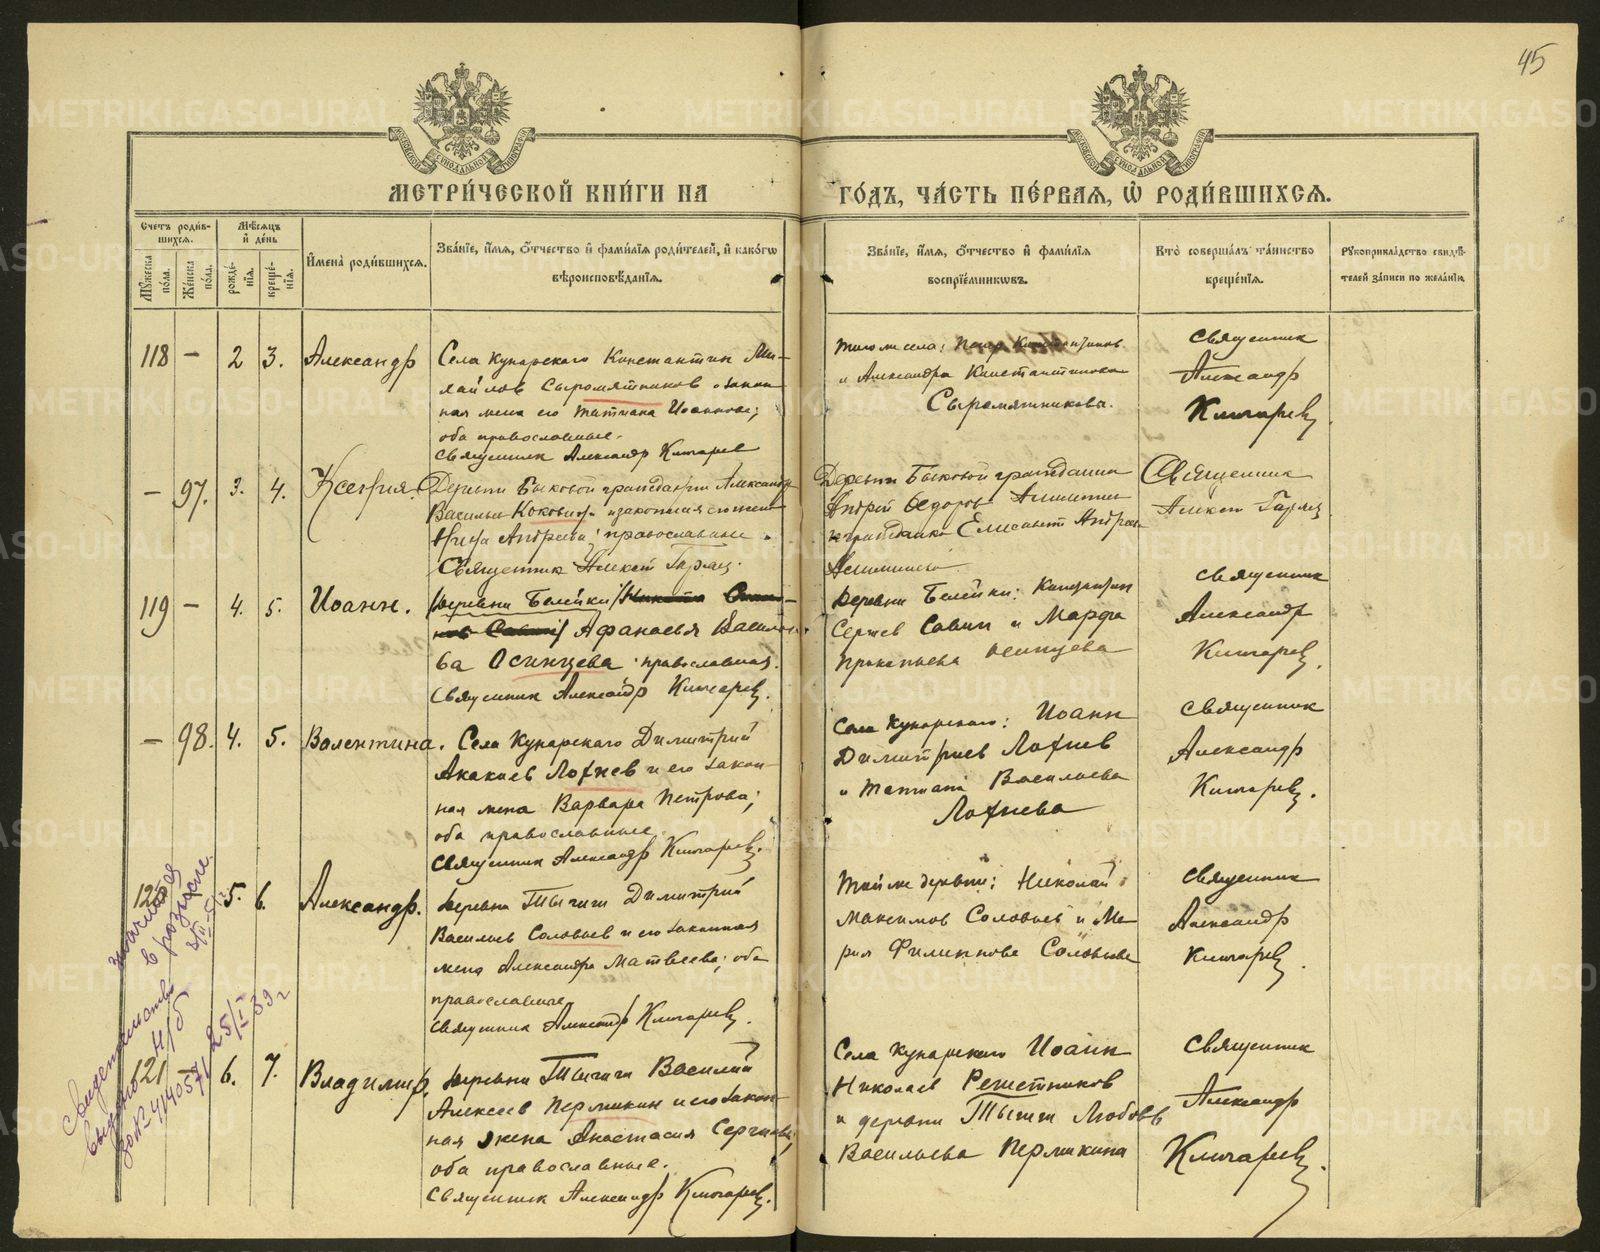 45
МЕТРИ́ЧЕСКОЙ КНИ́ГИ НА
ГО́ДЪ, ЧА́СТЬ ПЕ́РВАЯ, Ѡ РОДИ́ВШИХСѦ.
Счетъ роди́вшихсѧ.
Мѹ́жеска по́ла.
Же́нска по́ла.
Мѣ́сѧцъ и де́нь
рожде́нїѧ.
креще́нїѧ.
И҆мена̀ роди́вшихсѧ.
Зва́нїе, и҆́мѧ, ѻ҆́тчество и҆ фами́лїѧ роди́телей, и҆ како́гѡ
вѣроисповѣ́данїѧ.
Зва́нїе, и҆́мѧ, ѻ҆́тчество и҆ фами́лїѧ
воспрїе́мникѡвъ.
Кто̀ соверша́лъ та́инство
креще́нїѧ.
Рѹкоприкла́дство свидѣ́телей за́писи по жела́нїю.
118 — 2 3. Александр
Села Кунарского Константин Ми-
хайлов Сыромятников и закон-
ная жена его Татиана Иоаннова;
оба православные.
Священник Александр Ключарев
и Александра Константинова
Сыромятниковы.
Священник
Александр
Ключарев
— 97. 3. 4. Ксения.
Деревни Быковой гражданин Александр
Васильев Коковин и законная его жена
Андреева; православные.
Священник Алексей
Деревни Быковой гражданин
Андрей Федоров
и гражданка Андреева
Священник
Алексей
119 — 4. 5. Иоанн.
Деревни Белейки
Афанасья Василье-
ва Осинцева православная.
Священник Александр Ключарев.
Деревни Белейки: Константин
Сергеев Савин и Марфа
Прокопьева Осинцева
Священник
Александр
Ключарев.
— 98. 4. 5. Валентина.
Села Кунарского Димитрий
Акакиев Лохнев и его закон-
ная жена Варвара Петрова;
оба православные.
Священник Александр Ключарев.
Села Кунарского: Иоанн
Димитриев Лохнев
и Васильева
Лохнева
Священник
Александр
Ключарев.
120 5. 6. Александр.
Деревни Тыгиши Димитрий
Васильев Соловьев и его законная
жена Александра Матвеева; оба
православные
Священник Александр Ключарев.
Той же деревни: Николай
Максимов Соловьев и Ма-
рия Филиппова Соловьева
Священник
Александр
Ключарев.
121 — 6. 7. Владимир.
Деревни Тыгиши Василий
Алексеев Пермикин и его закон-
ная жена Анастасия Сергиева;
оба православные.
Священник Александр Ключарев.
Села Кунарского Иоанн
Николаев Решетников
и деревни Тыгиши Любовь
Васильева Пермикина
Священник
Александр
Ключарев.
значится
в розыске.
свидетельство
выдано
25/I 39 г
METRIKI.GASO-URAL.RU